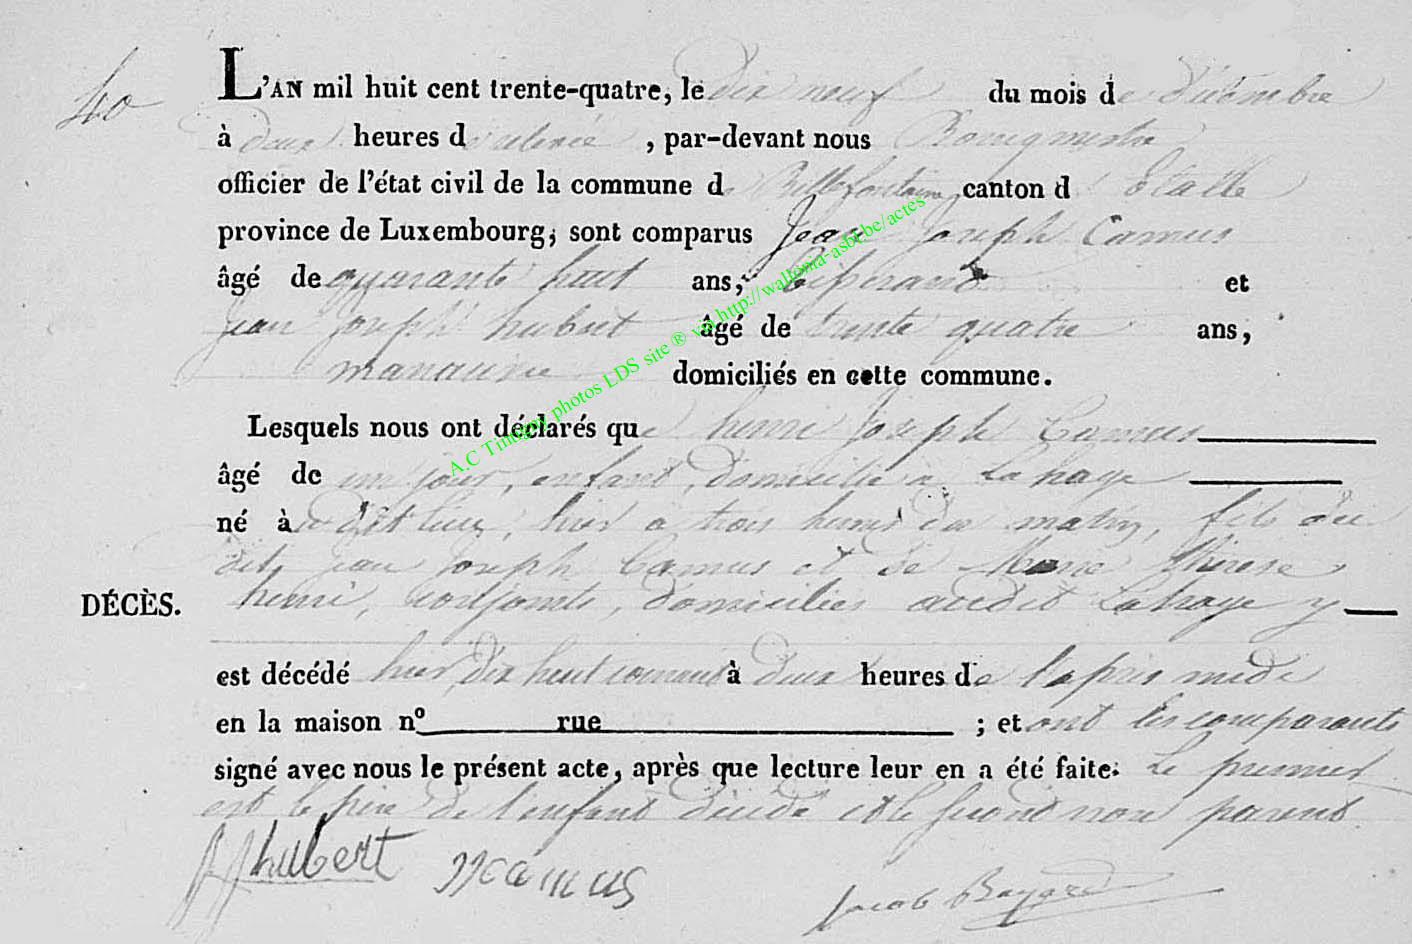 40
L'AN mil huit cent trente-quatre, le dix neuf du mois de décembre
à deux heures de relevée, par-devant nous Bourgmestre
officier de l'état civil de la commune de Bellefontaine canton d'Etalle
province de Luxembourg, sont comparus Jean Joseph Camus
âgé de quarante huit ans, et
Jean Joseph hubert âgé de trente quatre ans,
domiciliés en cette commune.
Lesquels nous ont déclarés que henri Joseph Camus
âgé de un jour, enfant, domicilié à Lahage
né à dit lieu, hier à trois heures du matin, fils du
dit Jean Joseph Camus et de Marie Thérèse
DÉCÈS. henri, conjoints, domiciliés audit Lahage
est décédé hier dix huit courant à deux heures de l'après midi
en la maison nº rue ; et ont les comparants
signé avec nous le présent acte, après que lecture leur en a été faite. Le premier
est le père de l'enfant décédé et le second non parent.
JJhubert JJcamus
Jacob Bayard
A.C Tintigny photos LDS site ® via http://wallonia-asbl.be/actes